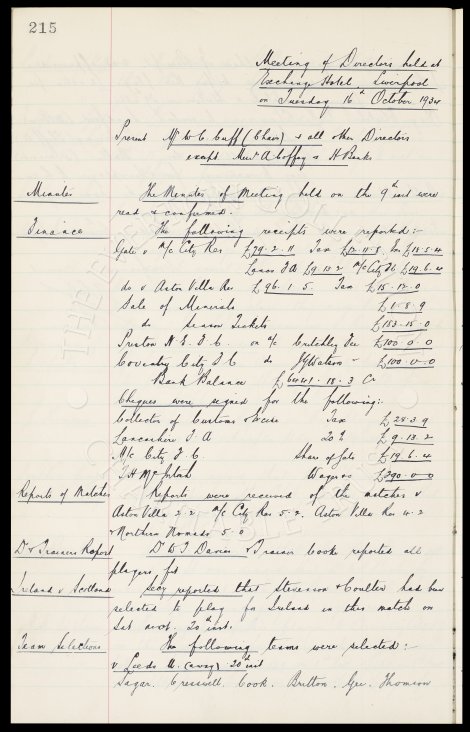 215
Meeting of Directors held at
Exchange Hotel Liverpool
on Tuesday 16th October 1934
Present Mr W. C. Cuff (Chair) & all other Directors
except Messrs A Coffey & H Banks
Minutes The Minutes of Meeting held on the 9th inst were
read & confirmed.
Finance The following receipts were reported:-
Gate v M/c City Res £79. 2. 11 Tax
Lancs F A £9. 13. 2 M/c City FC £19. 6. 4
do v Aston Villa Res £96. 1. 5. Tax £15. 12. 0
Sale of Minerals
do Season Tickets £153. 15. 0
Preston N. E. F. C. on a/c Critchley Fee £100. 0. 0
Coventry City F C do J Watson £100. 0. 0
Bank Balance Cr
Cheques were signed for the following:-
Collector of Customs & Excise Tax £28. 3. 9
Lancashire F. A £9. 13. 2
M/c City F. C. Share of Gate £19. 6. 4
T. H McIntosh Wages £390. 0. 0
Reports of Matches Reports were received of the matches v
Aston Villa 2. 2. M/c City Res 5. 2. Aston Villa Res 4. 2
& Northern Nomads 5. 0
Dr & Trainers Report Dr W. J. Davies & Trainer Cook reported all
players fit
Ireland v Scotland Secy reported that Stevenson & Coulter had been
selected to play for Ireland in this match on
Sat next. 20th inst.
Team Selections The following teams were selected:-
v Leeds U. (away) 20th inst
Sagar. Cresswell. Cook. Britton. Gee. Thomson